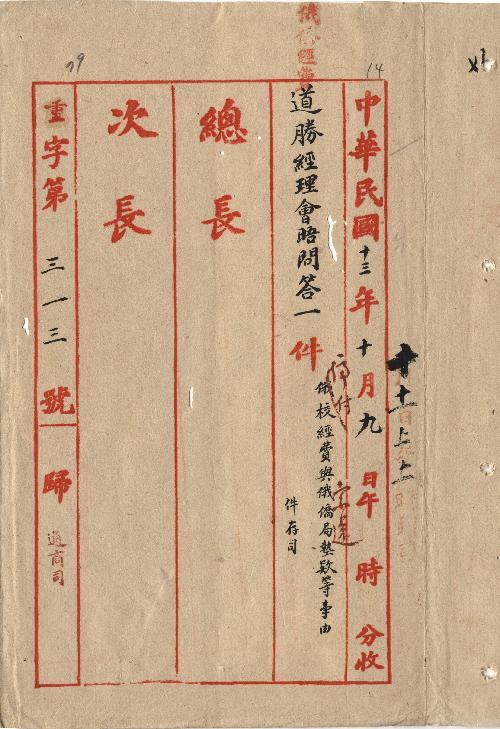 俄僑經費
14
中華民國十三年十月九日午 時 分收
道勝經理會晤問答一件
停付
俄校經費與俄僑局墊欵等事由
件存司
總長
次長
79
重字第三一三號歸通商司
十